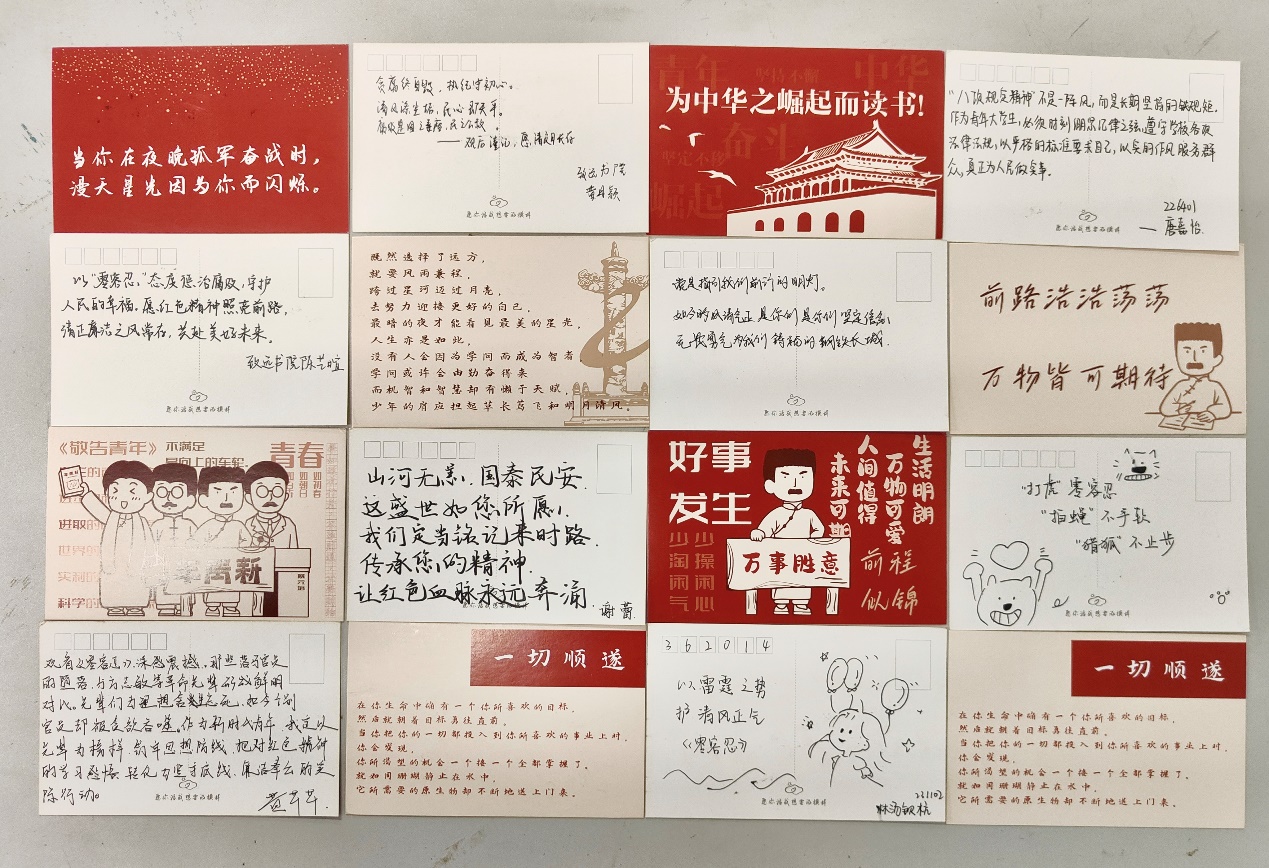 当你在夜晚孤军奋战时，
漫天星光因为你而闪烁。
贪腐终自毁，执纪守初心。
清风
愿清风长存
致远书院
愿你活成想要的模样
青年
坚持不懈
中华
为中华之崛起而读书！
奋斗
坚定不移
崛起
"八项规定精神"不是一阵风，而是长期坚持的铁规矩。
作为青年大学生，必须时刻绷紧纪律之弦，遵守学校各项
法律法规，以严格的标准要求自己，以实的作风服务群
众，真正为人民做实事。
226401
—— 唐嘉怡
愿你活成想要的模样
以"零容忍"态度惩治腐败，守护
人民的幸福。愿红色精神照亮前路，
清正廉洁之风常存，共赴美好未来。
致远书院陈艺暄
愿你活成想要的模样
既然选择了远方，
就要风雨兼程，
跨过星河迈过月亮，
去努力迎接更好的自己，
最暗的夜才能看见最美的星光，
人生亦是如此，
没有人会因为学问而成为智者
学问或许会由勤奋得来
而机智和智慧却有懒于天赋，
少年的肩应担起草长莺飞和明月清风。
党是指引我们前行的明灯。
如今的风清气正是你们是你们坚定信念
无畏勇气为我们铸福的钢铁长城.
愿你活成想要的模样
前路浩浩荡荡
万物皆可期待
《敬告青年》
不满足
是向上的车轮.
青春
如初春
如朝日
进取的
世界的
实利的
科学的
离新
山河无恙，国泰民安
这盛世如您所愿，
我们定当铭记来时路
传承您的精神
让红色血脉永远奔涌
谢蕾
好事
发生
少操闲心
少淘闲气
生活明朗
万物可爱
人间值得
未来可期
前程
似锦
万事胜意
"打虎"零容忍
"拍蝇"不手软
"猎狐"不止步
愿你活成想要的模样
观看《零容忍》，深感震撼，那些落马官员
的堕落，与方志敏等革命先辈形成鲜明
对比。先辈们为理想舍生忘死，如今个别
官员却被贪欲吞噬。作为新时代青年，我定以
先辈为榜样，筑牢思想防线，把对红色精神
的学习感悟，转化为坚守底线、廉洁奉公的实
际行动。
黄芊芊.
愿你活成想要的模样
一切顺遂
在你生命中确有一个你所喜欢的目标，
然后就朝着目标勇往直前。
当你把你的一切都投入到你所喜欢的事业上时，
你会发现，
你所渴望的机会一个接一个全部掌握了，
就如同珊瑚静止在水中，
它所需要的原生物却不断地送上门来。
362014
以雷霆之势
护清风正气
《零容忍》
愿你活成想要的模样
221102
一切顺遂
在你生命中确有一个你所喜欢的目标，
然后就朝着目标勇往直前。
当你把你的一切都投入到你所喜欢的事业上时，
你会发现，
你所渴望的机会一个接一个全部掌握了，
就如同珊瑚静止在水中，
它所需要的原生物却不断地送上门来。